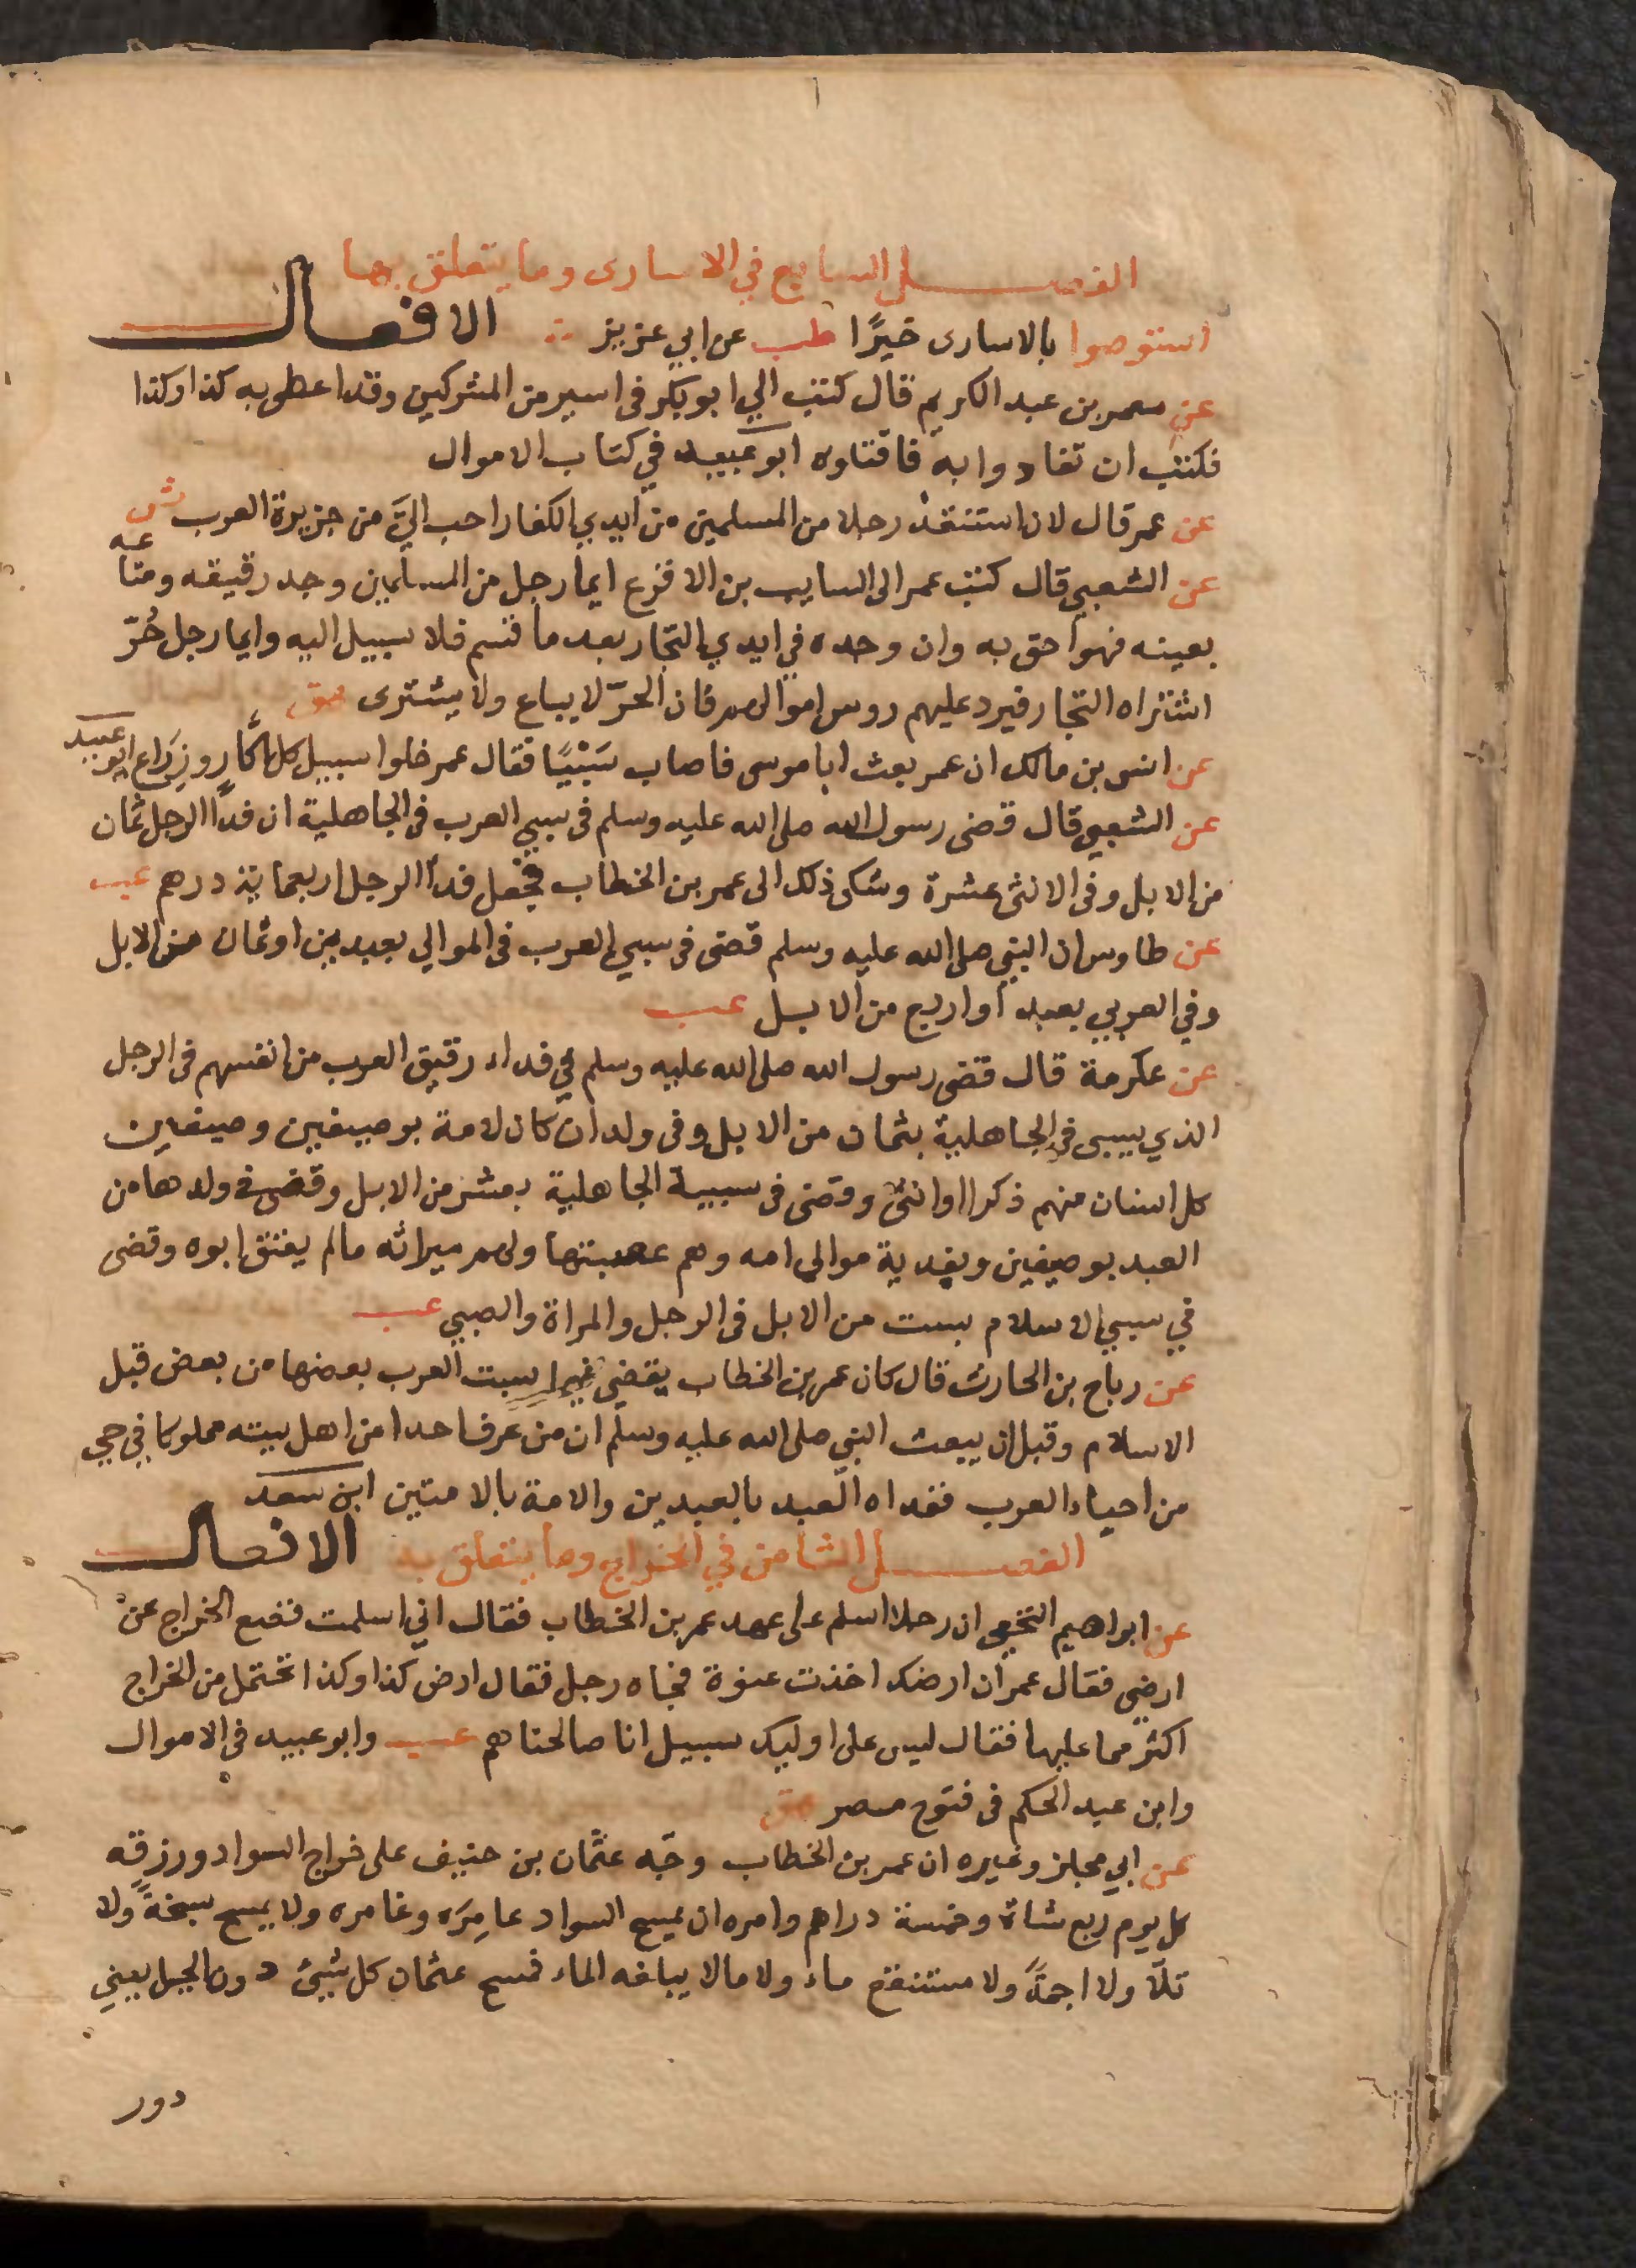 ١
الفصل السابع في الاسارى وما يتعلق بها
استوصوا بالاسارى خيرًا طب عن ابي عزيز الافعال
عن معمر بن عبد الكريم قال كتب الي ابو بكر فى اسير من المشركين وقد اعطى به كذا وكذا
فكتب ان تفادوا به فاقتلوه ابو عبيد في كتاب الاموال
عن عمر قال لان استنقذ رجلا من المسلمين من ايدي الكفار احب اليَّ من جزيرة العرب ش
عن الشعبي قال كتب عمر الى السايب بن الاقرع ايما رجل من المسلمين وجد رقيقه ومتاعه
بعينه فهو احق به وان وجده في ايدي التجار بعد ما قسم فلا سبيل اليه وايما رجل حُرّ
اشتراه التجار فيرد عليهم روس اموالهم فان الحرّ لا يباع ولا يشترى هق
عن انس بن مالك ان عمر بعث ابا موسى فاصاب سَبْيًا فقال عمر خلوا سبيل كل اكّار وزرّاع ابو عبيد
عن الشعبي قال قضى رسول الله صلى الله عليه وسلم فى سبي العرب فى الجاهلية ان فداً الرجل ثمان
من الابل وفى الانثى عشرة وشكى ذلك الى عمر بن الخطاب فجعل فدأ الرجل اربعماية درهم عب
عن طاوس ان النبي صلى الله عليه وسلم قضى فى سبي العرب فى الموالي بعبدين او ثمان من الابل
وفي العربي بعبد او اربع من الابل عب
عن عكرمة قال قضى رسول الله صلى الله عليه وسلم في فداء رقيق العرب من انفسهم فى الرجل
الذي يسبى في الجاهلية بثمان من الابل وفى ولد ان كان لامة بوصيفين وصيفين
كل انسان منهم ذكرا او انثى وقضى فى سبية الجاهلية بعشر من الابل وقضى في ولدها من
العبد بوصيفين ويفدية موالي امه وهم عصبتها ولهم ميراثه مالم يعتق ابوه وقضى
في سبي الاسلام بست من الابل فى الرجل والمراة والصبي عب
عن رباح بن الحارث قال كان عمر بن الخطاب يقضي فيما سبت العرب بعضها من بعض قبل
الاسلام وقبل ان يبعث النبي صلى الله عليه وسلم ان من عرف احدا من اهل بيته مملوكا في حي
من احياء العرب ففداه العبد بالعبدين والامة بالامتين ابن سعد
الفصل الثامن في الخراج وما يتعلق به الافعال
عن ابراهيم النخعي ان رجلا اسلم على عهد عمر بن الخطاب فقال اني اسلمت فضع الخراج عن
ارضي فقال عمر ان ارضك اخذت عنوة فجاه رجل فقال ارض كذا وكذا تحتمل من الخراج
اكثر مما عليها فقال ليس على اوليك سبيل انا صالحناهم عب وابو عبيد فى الاموال
وابن عبد الحكم فى فتوح مصر هق
عن ابي مجلز وغيره ان عمر بن الخطاب وجّه عثمان بن حنيف على خراج السواد ورزقه
كل يوم ربع شاة وخمسة دراهم وامره ان يمسح السواد عامِرَه وغامره ولا يمسح سبخةً ولا
تلّا ولا اجمةً ولا مستنقع ماء ولا مالا يبلغه الماء فمسح عثمان كل شيئ دون الجبل يعني
دور